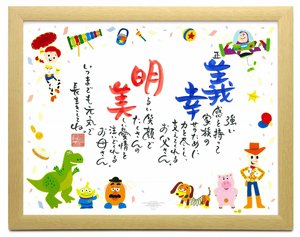 強い
正義感を持って
家族の
幸せのために
力を尽くし
支えてくれる
お父さん。
明るい笑顔で
たくさんの
美しい愛情を
注いでくれる
お母さん
いつまでも元気で
長生きしてね